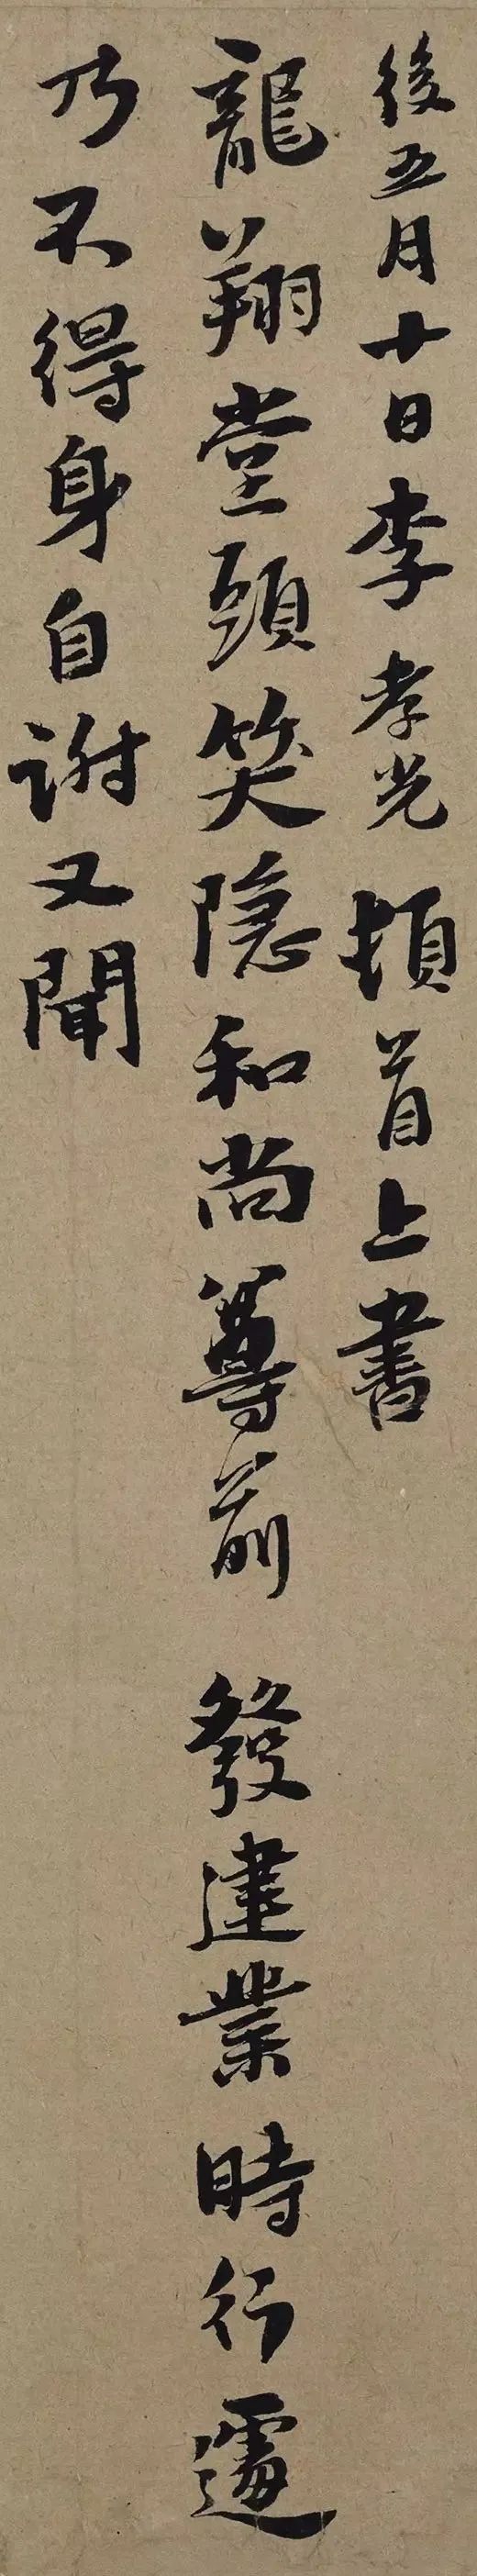 後五月十日李孝光頓首上書
龍翔堂頭笑隱和尚尊前 發建業時行遽
乃不得身自謝又聞